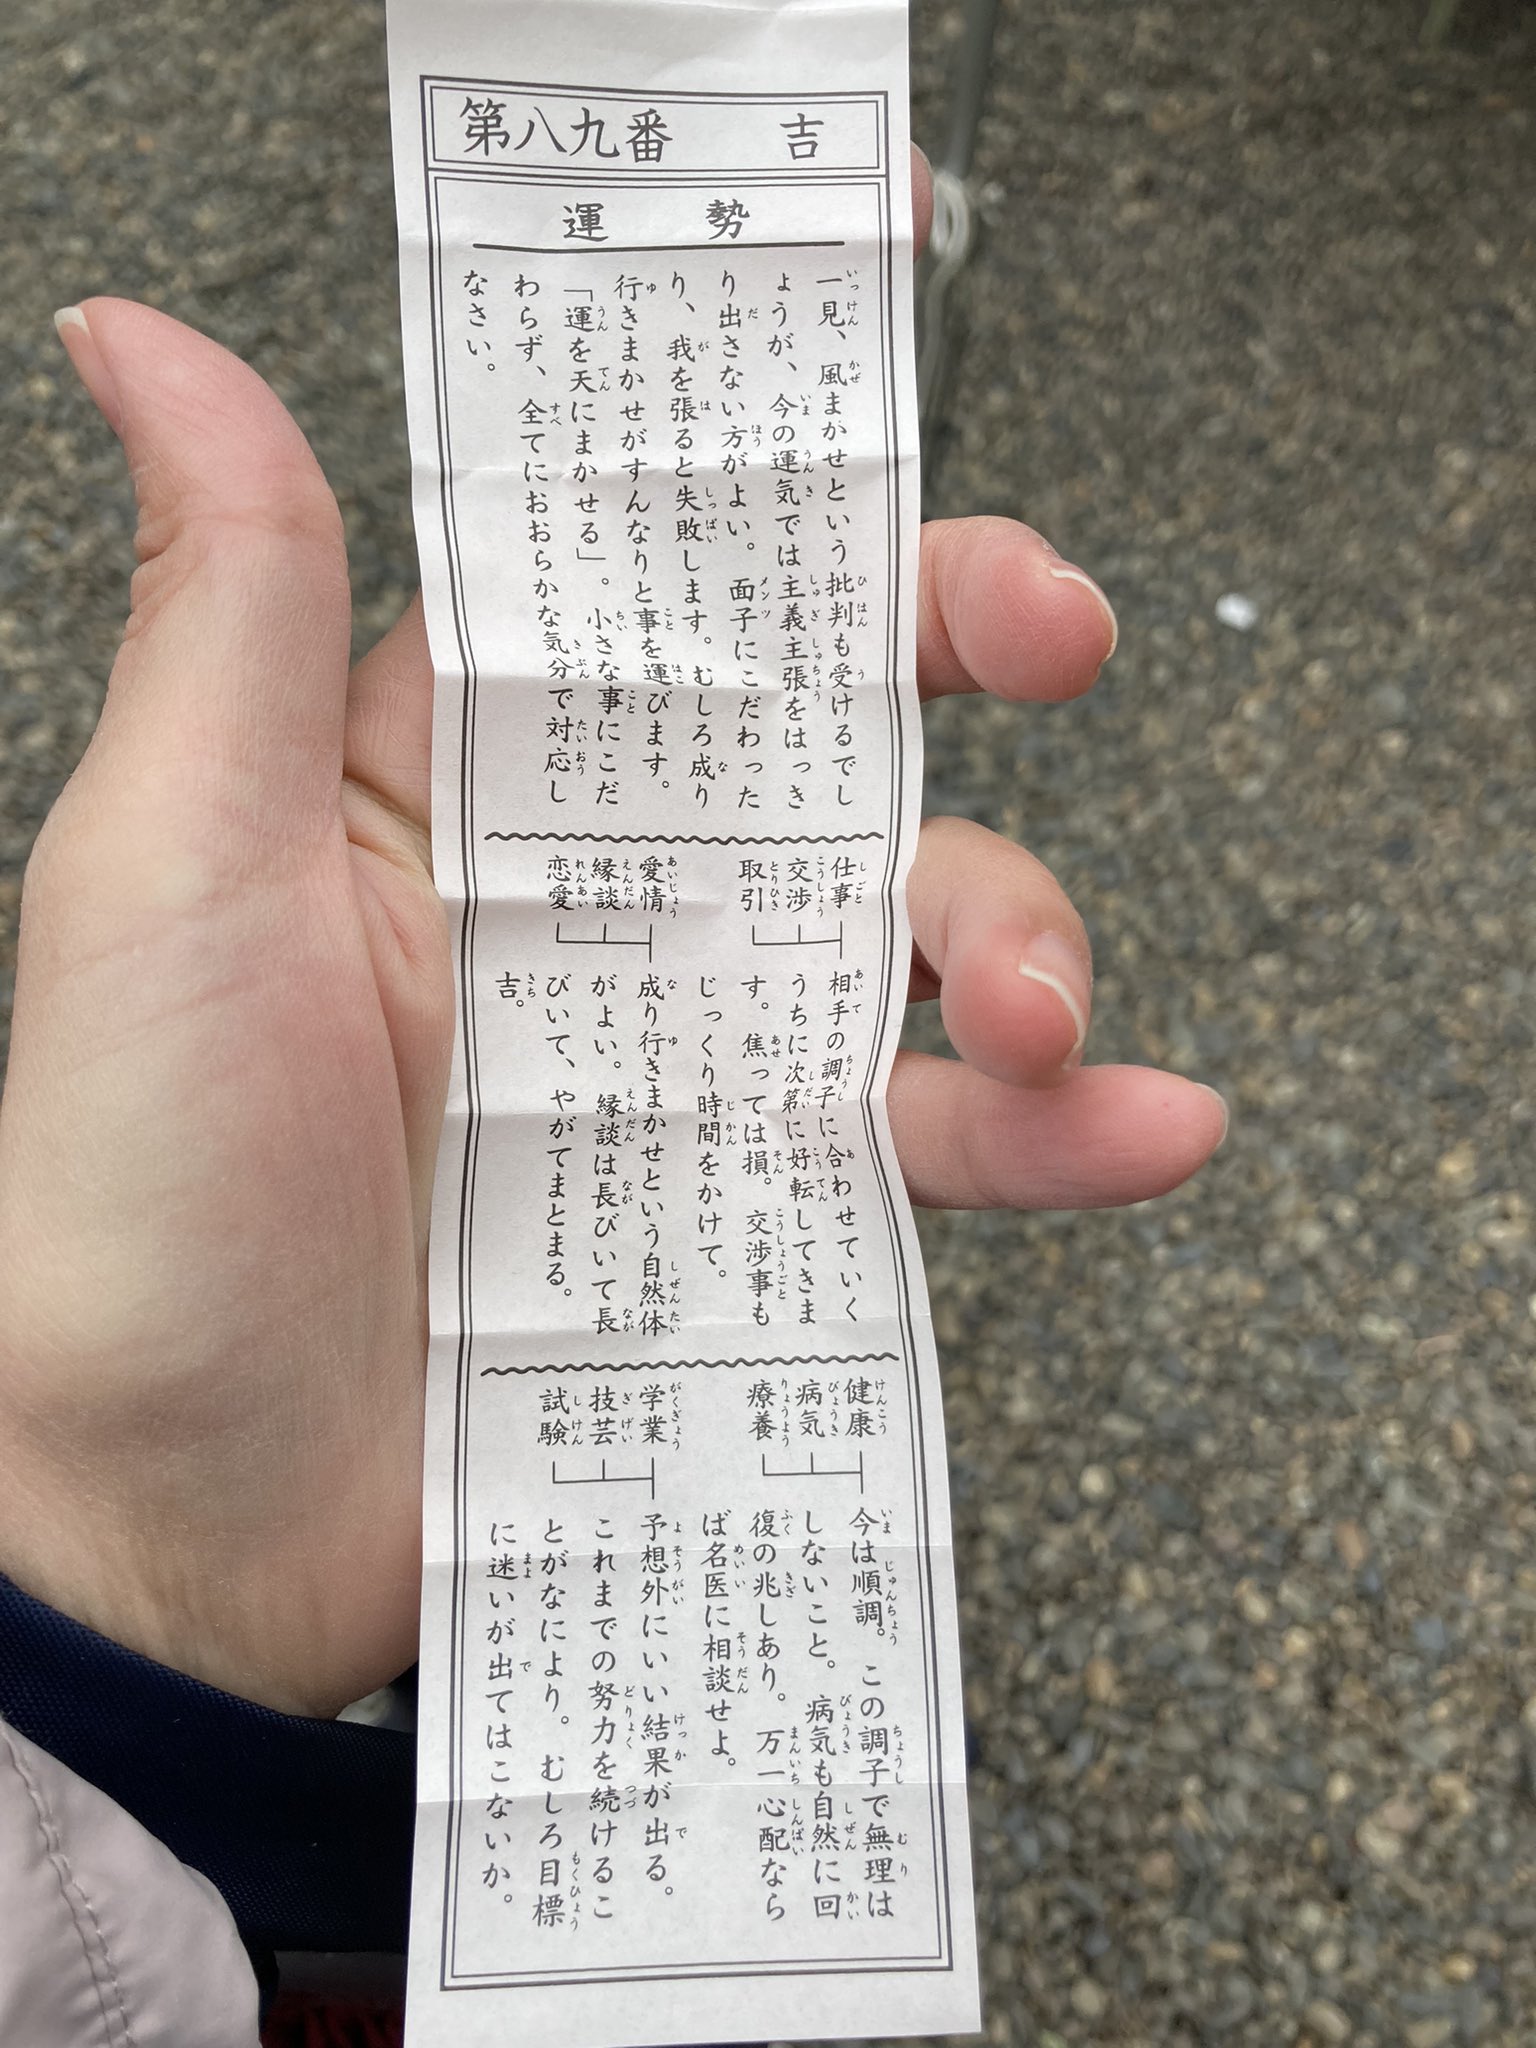 第八九番　吉
運勢
一見、風まかせという批判も受けるでし
ょうが、今の運気では主義主張をはっき
り出さない方がよい。面子にこだわった
り、我を張ると失敗します。むしろ成り
行きまかせがすんなりと事を運びます。
「運を天にまかせる」。小さな事にこだ
わらず、全てにおおらかな気分で対応し
なさい。
仕事
交渉
取引
相手の調子に合わせていく
うちに次第に好転してきま
す。焦っては損。交渉事も
じっくり時間をかけて。
愛情
縁談
恋愛
成り行きまかせという自然体
がよい。縁談は長びいて長
びいて、やがてまとまる。
吉。
健康
病気
療養
今は順調。この調子で無理は
しないこと。病気も自然に回
復の兆しあり。万一心配なら
ば名医に相談せよ。
学業
技芸
試験
予想外にいい結果が出る。
これまでの努力を続けるこ
とがなにより。むしろ目標
に迷いが出てはこないか。